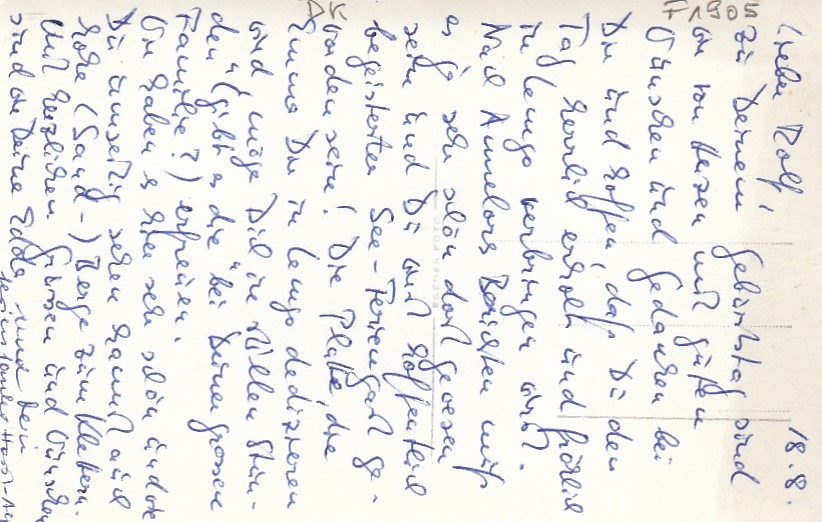 18.8.
Lieber Rolf,
zu Deinem Geburtstag sind
wir von Herzen mit guten
Wünschen und Gedanken bei
Dir und hoffen, daß Du den
Tag herrlich erholt und fröhlich
in Lemgo verbringen wirst.
Nach Annelores Berichten muß
es ja sehr schön dort gewesen
sein und Du wirst hoffentlich
begeisterter See-Feriengast ge-
worden sein! Die Platte, die
Emma Dir in Lemgo dedizieren
wird möge Dich in stillen Stun-
den (gibt es die bei Deiner grossen
Familie?) erfreuen.
Wir haben es hier sehr schön und
Du umseitig sehen kannst auch
hohe (Sand-) Berge zum Klettern.
Mit herzlichen Grüssen und Wünschen
sind wir Deine Edda und Dein
F1905
DK